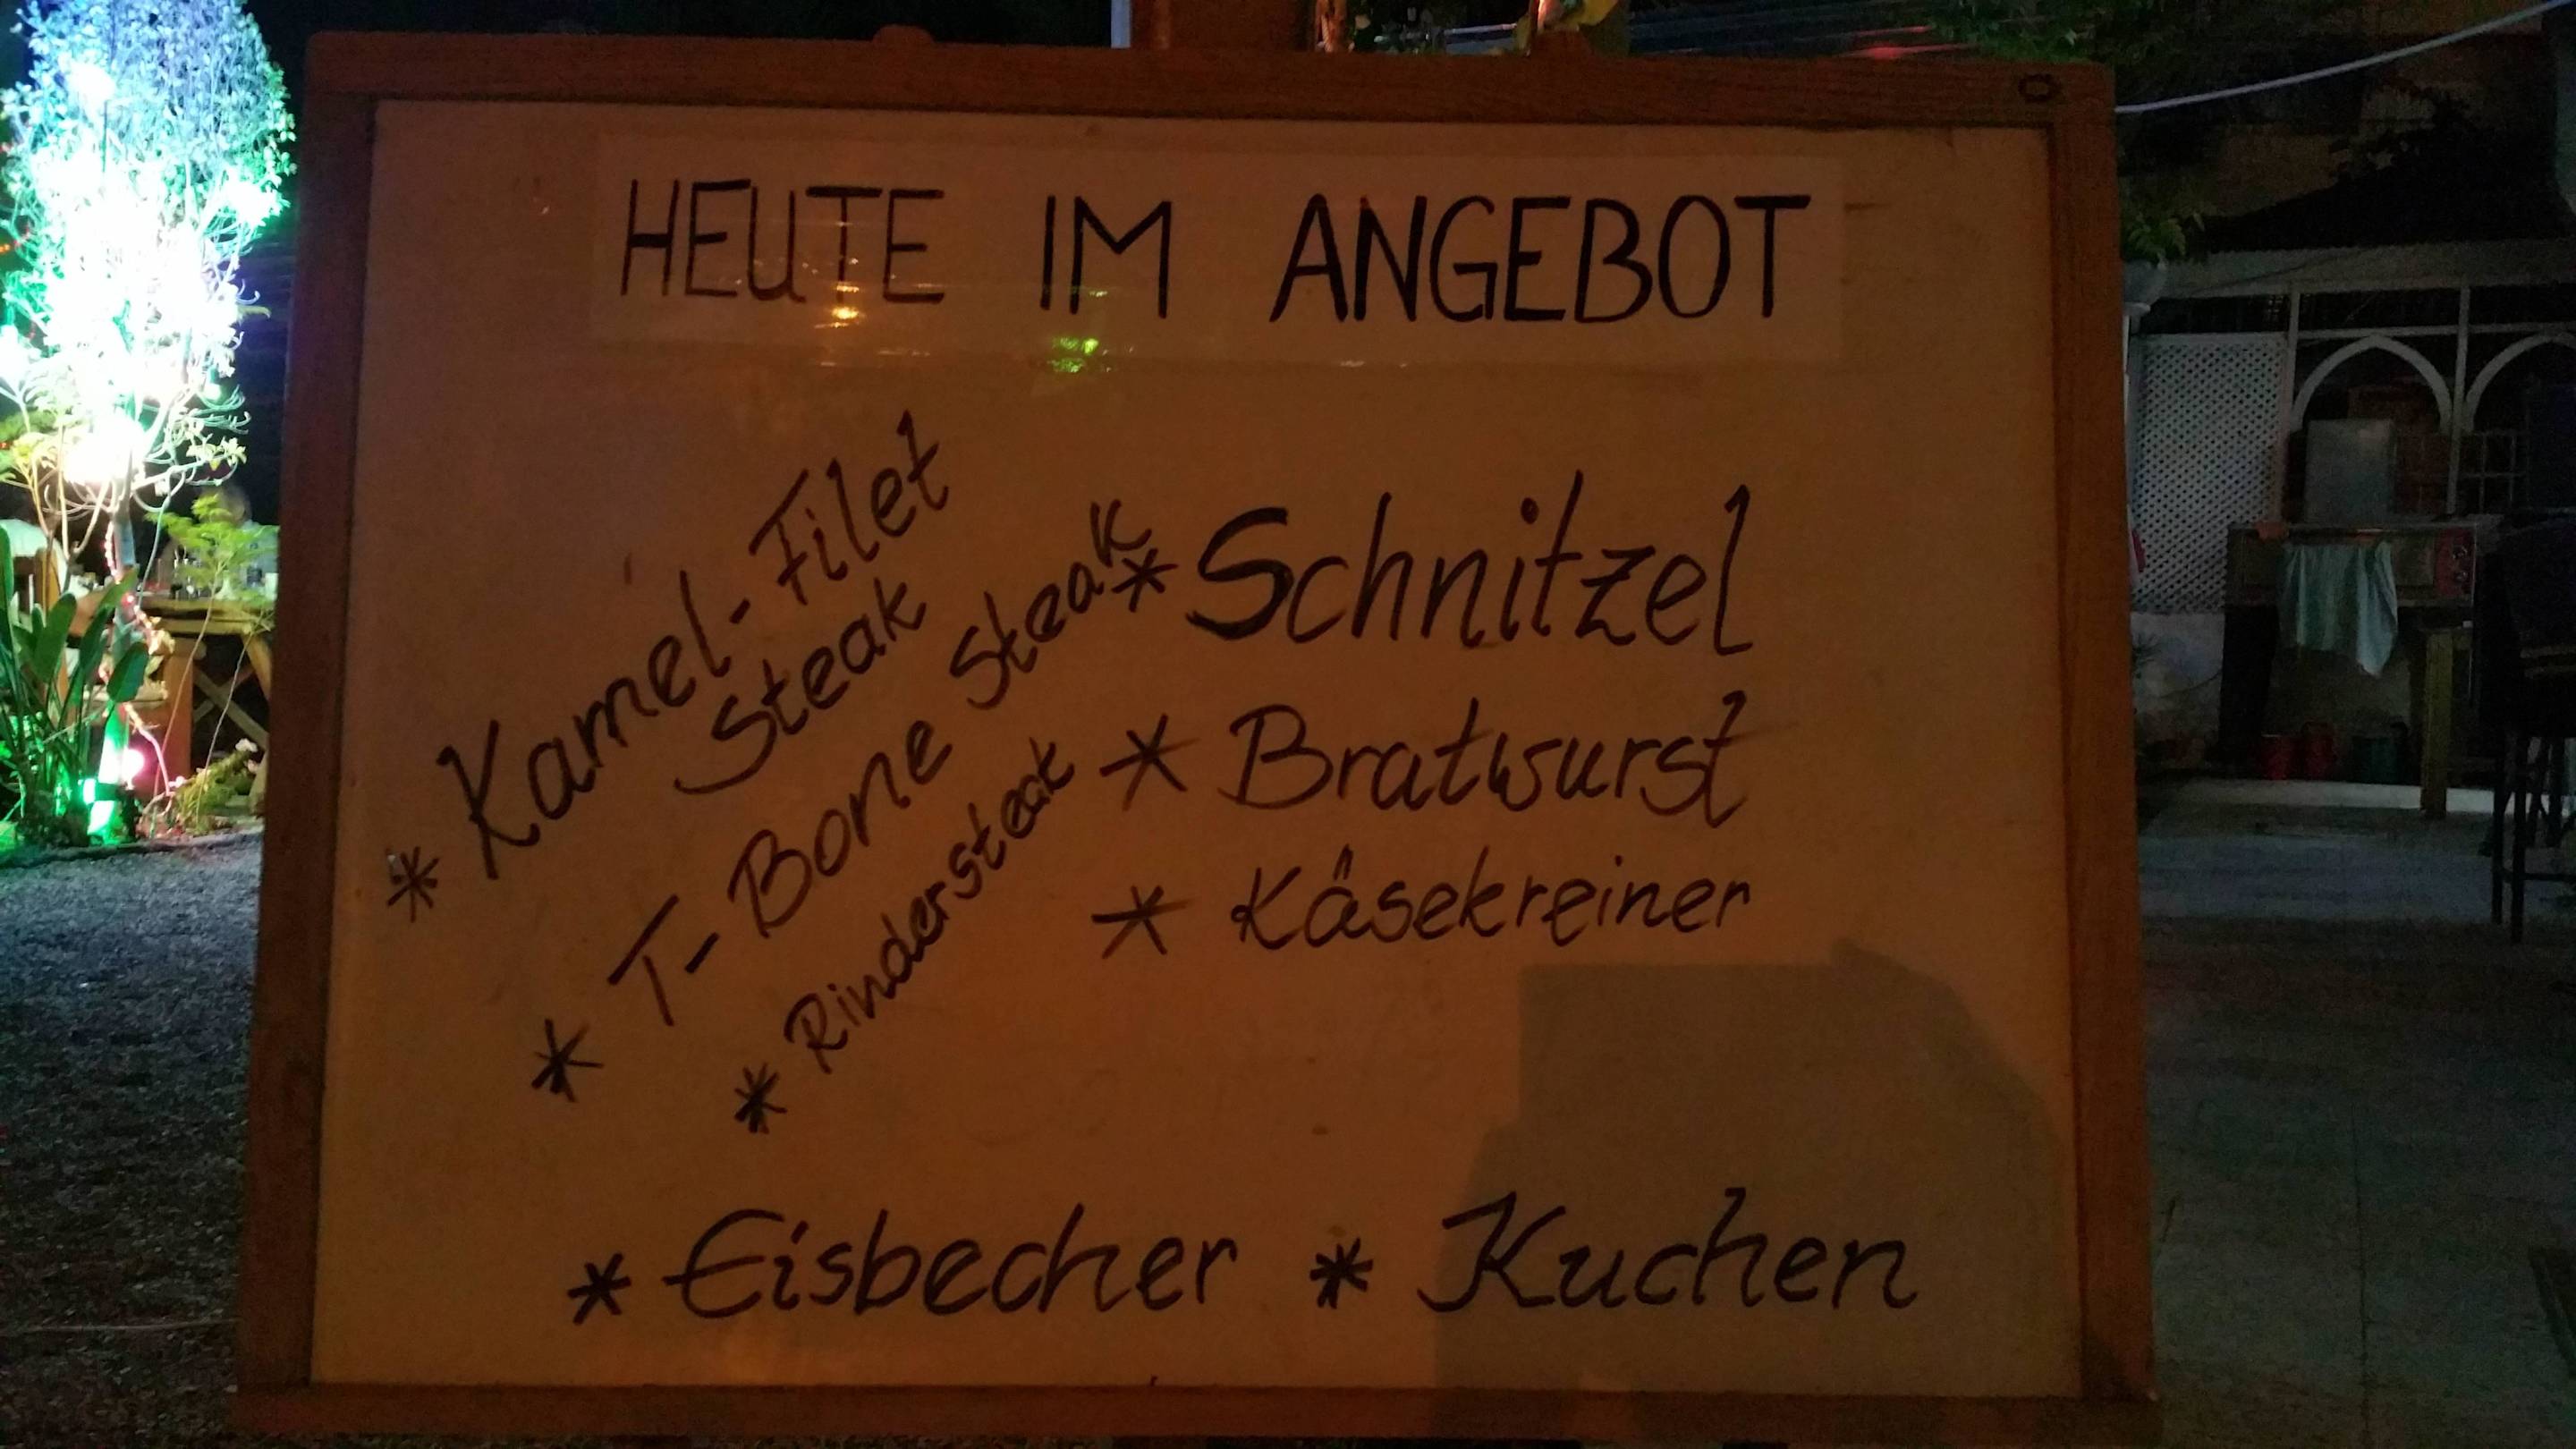 HEUTE IM ANGEBOT
* Kamel-Filet
Steak
* T-Bone Steak
* Rindersteak
* Schnitzel
* Bratwurst
* Käsekreiner
* Eisbecher * Kuchen